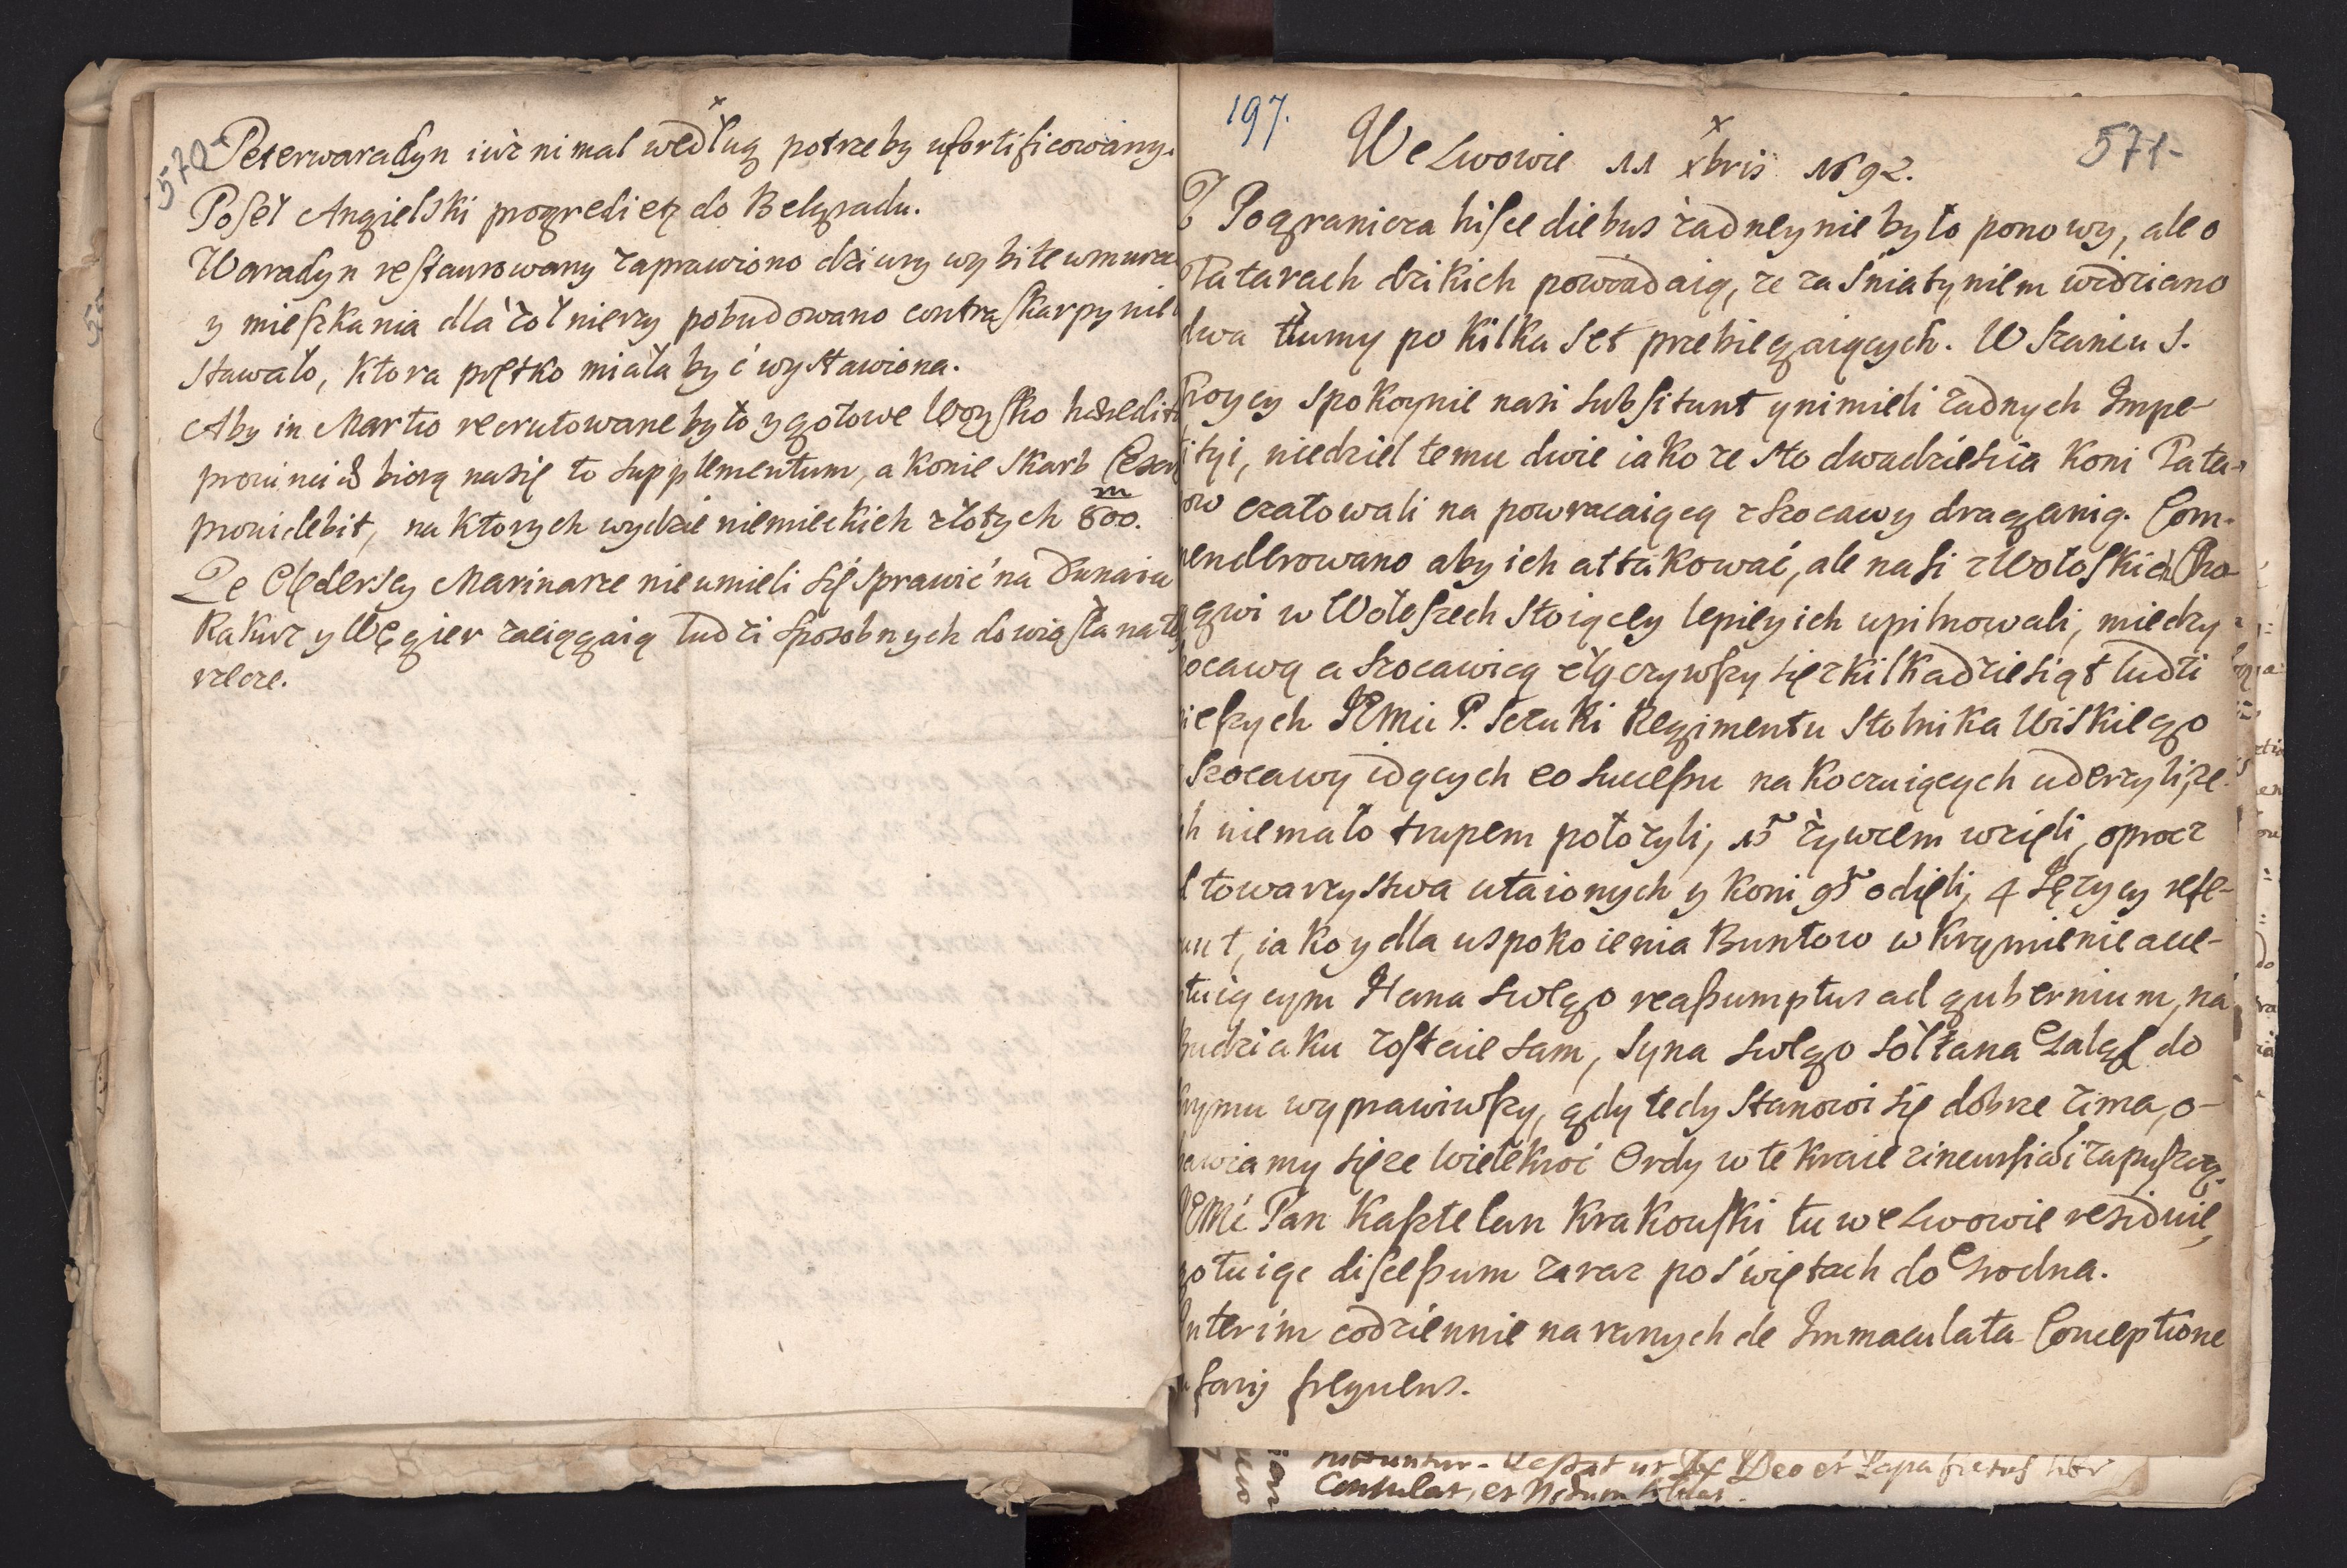 570-
Peterwaradyn iuż nimal według potrzeby ufortificowany.
Poseł Angielski progredietr do Belgradu.
Waradyn restaurowany zaprawiono dziury wybite w mura
y mieszkania dla żołnierzy pobudowano contraskarpy nie
stawało, ktora prętko miała być wystawiona.
Aby in Martio recrutowane było y gotowe Woysko hæredit
provinciæ biorą na się to supplementum, a konie skarb Cesar
providebit, na ktorych wydzie niemieckich złotych 800.
m
Ze Olęderscy Marinarze nie umieli się sprawić na Dunaiu
Rakuz y Węgier zaciągaią ludzi sposobnych do wiosła na tey
rzece.
197.
571-
We Lwowie 11 xbris 1692.
Z Pogranicza hisce diebus żadney nie było ponowy, ale o
Tatarach dzikich powiadaią, ze za Śniatyniem widziano
dwa tłumy po kilka set przebiegaiących. W Szancu S.
Troycy spokoynie nasi subsitunt y nimieli żadnych Impe-
tityi, niedziel temu dwie iako ze sto dwadzieścia koni Tata-
row czatowali na powracaiącą z Soczawy draganią. Com-
menderowano aby ich attakować, ale nasi z Wołoskich Cho-
rągwi w Wołoszech stoiącey lepiey ich upilnowali, miedzy
Socawą a Socawicą złączywszy się z kilkadziesiąt ludzi
pieszych JEMci P. Sczuki Regimentu Stolnika Wiskiego
Soczawy idących eo successu na koczuiących uderzyli, ze
ich niemało trupem położyli, 15 żywcem wzięli, oprocz
od towarzystwa utaionych y koni 95 odięli, 4 Językcy refe-
runt, iako y dla uspokoienia Buntow w Krymie nie acce-
ptuiącym Hana swego reassumptus ad gubernium, na
Budziaku zostaie sam, syna swego sołtana Gałgę do
Krymu wyprawiwszy, gdy tedy stanowi się dobrze zima, o-
bawiamy się ze wielekroć Ordy w te kraie z incursiami zapuszczą.
JEMć Pan Kasztelan Krakowski tu we Lwowie residuie,
gotuiąc discessum zaraz po świętach do Grodna.
Interim codziennie na ranych de Immaculata Conceptione
Consulat, et